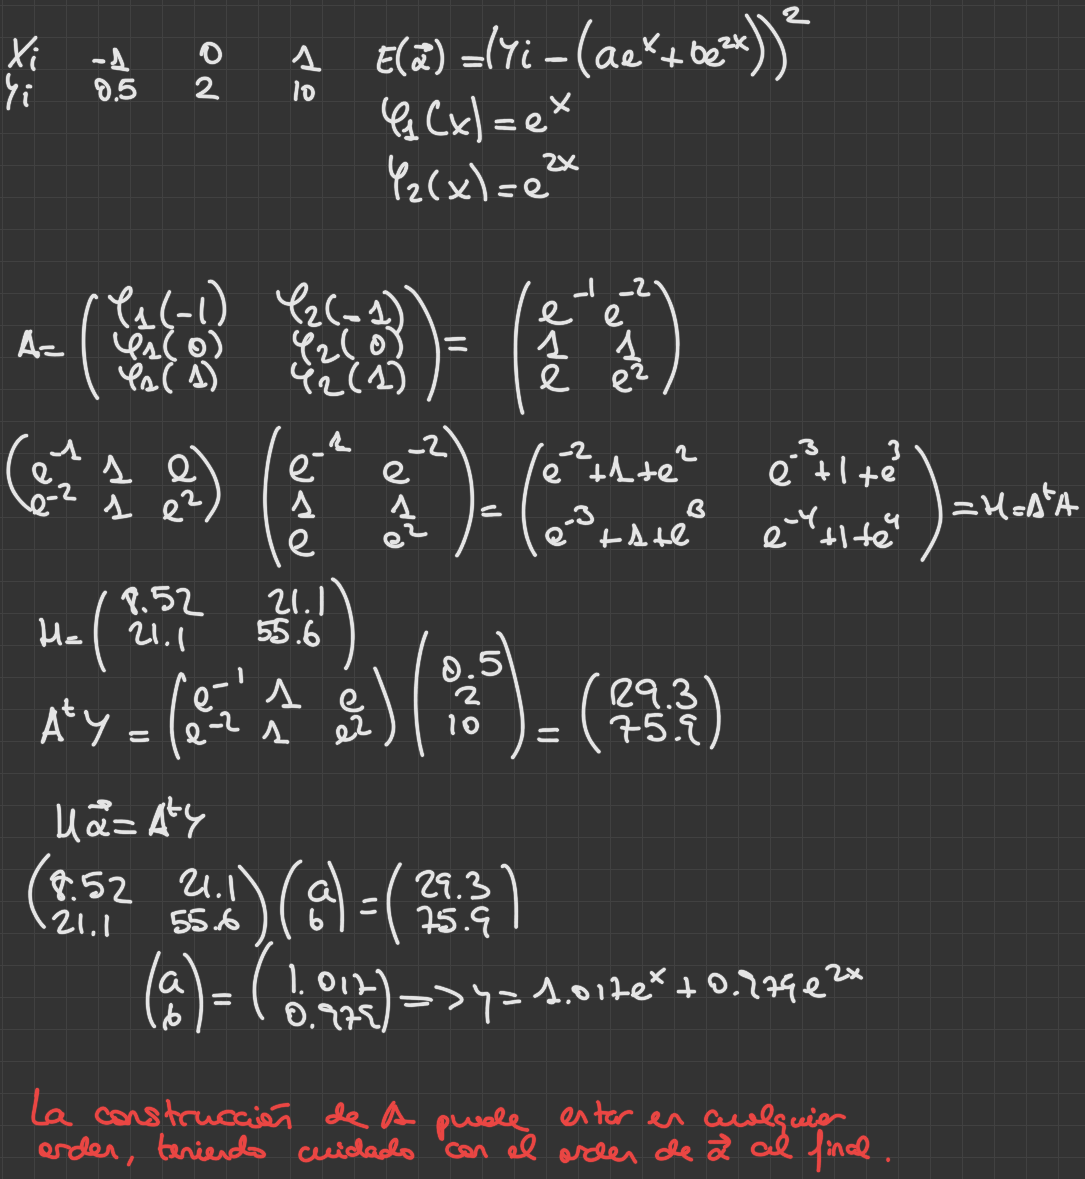 Xi -1 0 1 E(α⃗) = (Yi - (ae^x + be^{2x}))^2
Yi 0.5 2 10
φ1(x) = e^x
φ2(x) = e^{2x}
A = (φ1(-1) φ2(-1); φ1(0) φ2(0); φ1(1) φ2(1)) = (e^{-1} e^{-2}; 1 1; e e^2)
(e^{-1} 1 e; e^{-2} 1 e^2) (e^{-1} e^{-2}; 1 1; e e^2) = (e^{-2}+1+e^2 e^{-3}+1+e^3; e^{-3}+1+e^3 e^{-4}+1+e^4) = M = A^t A
M = (8.52 21.1; 21.1 55.6)
A^t Y = (e^{-1} 1 e; e^{-2} 1 e^2) (0.5; 2; 10) = (29.3; 75.9)
M α⃗ = A^t Y
(8.52 21.1; 21.1 55.6) (a; b) = (29.3; 75.9)
(a; b) = (1.017; 0.979) => y = 1.017e^x + 0.979e^{2x}
La construcción de A puede estar en cualquier
orden, teniendo cuidado con el orden de α⃗ al final.